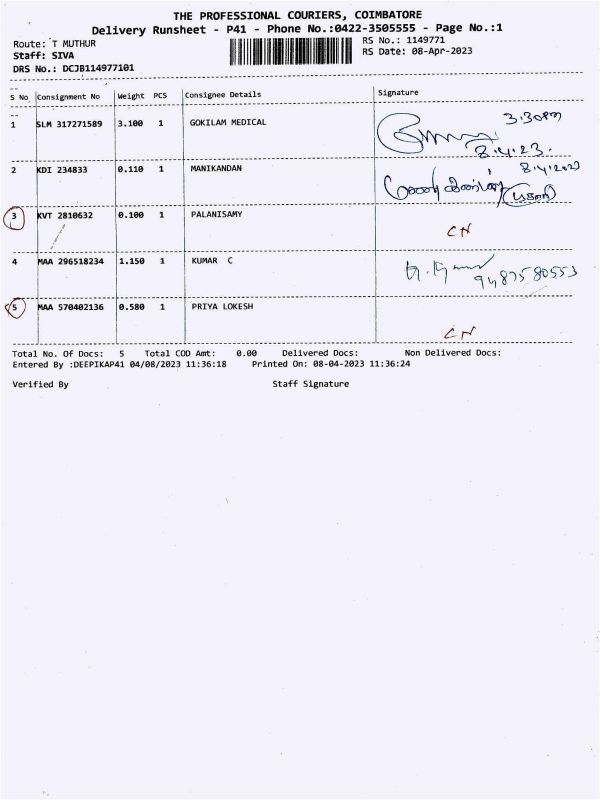 THE PROFESSIONAL COURIERS, COIMBATORE
Delivery Runsheet - P41 - Phone No.:0422-3505555 - Page No.:1
Route: T MUTHUR
RS No.: 1149771
Staff: SIVA
RS Date: 08-Apr-2023
DRS No.: DCJB114977101
S No Consignment No Weight PCS Consignee Details Signature
1 SLM 317271589 3.100 1 GOKILAM MEDICAL 3.30pm
8.4.23.
2 KDI 234833 0.110 1 MANIKANDAN 8.4.2023
3 KVT 2810632 0.100 1 PALANISAMY
CN
4 MAA 296518234 1.150 1 KUMAR C
9487580553
5 MAA 570402136 0.580 1 PRIYA LOKESH
CN
Total No. Of Docs: 5 Total COD Amt: 0.00 Delivered Docs: Non Delivered Docs:
Entered By :DEEPIKAP41 04/08/2023 11:36:18 Printed On: 08-04-2023 11:36:24
Verified By Staff Signature